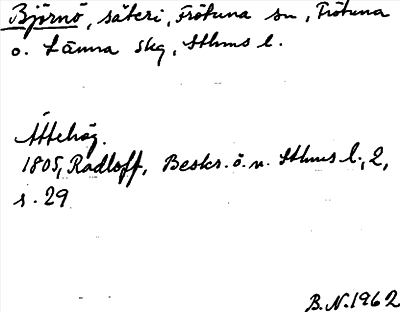 Björnö, säteri, Frötuna sn, Frötuna
o. Länna skg, Sthms l.
Ättehög.
1805, Radloff, Beskr. ö. n. Sthms l., 2,
s. 29
B.N. 1962